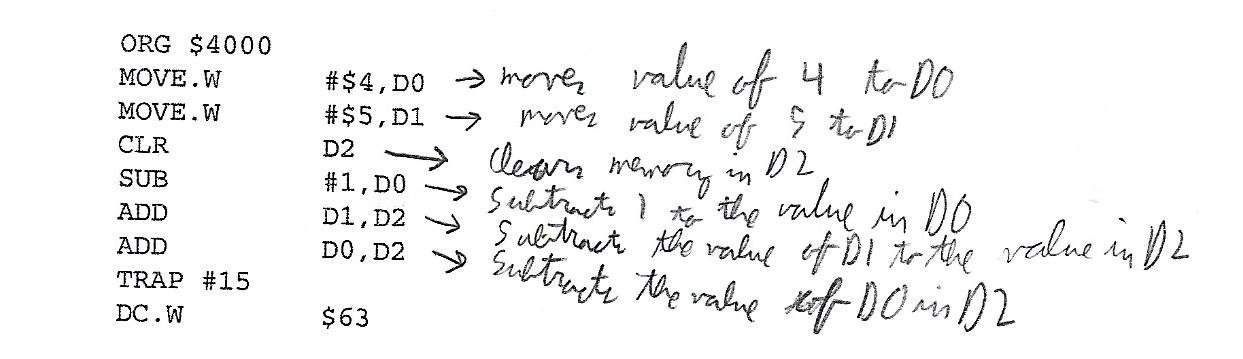 ORG $4000
MOVE.W #$4,D0 → moves value of 4 to D0
MOVE.W #$5,D1 → moves value of 5 to D1
CLR D2 → Clears memory in D2
SUB #1,D0 → Subtracts 1 to the value in D0
ADD D1,D2 → Subtracts the value of D1 to the value in D2
ADD D0,D2 → Subtracts the value of D0 in D2
TRAP #15
DC.W $63